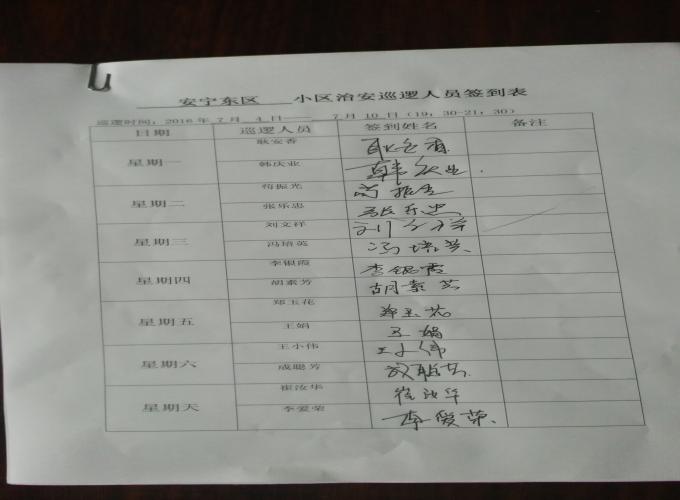 安宁东区 小区治安巡逻人员签到表
巡逻时间：2016年7月4日——7月10日（19：30-21：30）
日期 巡逻人员 签到姓名 备注
星期一 耿安香 耿安香
韩庆业 韩庆业
星期二 苟振光 苟振光
张乐忠 张乐忠
星期三 刘文祥 刘文祥
冯培英 冯培英
星期四 李银霞 李银霞
胡素芳 胡素芳
星期五 郑玉花 郑玉花
王娟 王娟
星期六 王小伟 王小伟
成聪芳 成聪芳
星期天 崔汝华 崔汝华
李爱荣 李爱荣